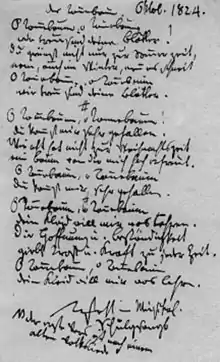 Der Tannbaum, Oktob. 1824.
O Tannbaum, o Tannbaum!
wie treu sind deine Blätter.
Du grünst nicht nur zur Sommerzeit,
nein, auch im Winter, wenn es schneit
O Tannbaum, o Tannbaum
wie treu sind deine Blätter.
O Tannbaum, o Tannebaum!
du kannst mir sehr gefallen.
Wie oft hat nicht zur Weihnachtszeit
ein Baum von dir mich hoch erfreut.
O Tannbaum, o Tannbaum
du kannst mir sehr gefallen.
O Tannbaum, o Tannbaum
dein Kleid will mich was lehren.
Die Hoffnung u. Beständigkeit
giebt Trost u. Kraft zu jeder Zeit.
O Tannbaum, o Tannbaum
dein Kleid will mich was lehren.
Der erste Vers nach einem
alten Volksliede